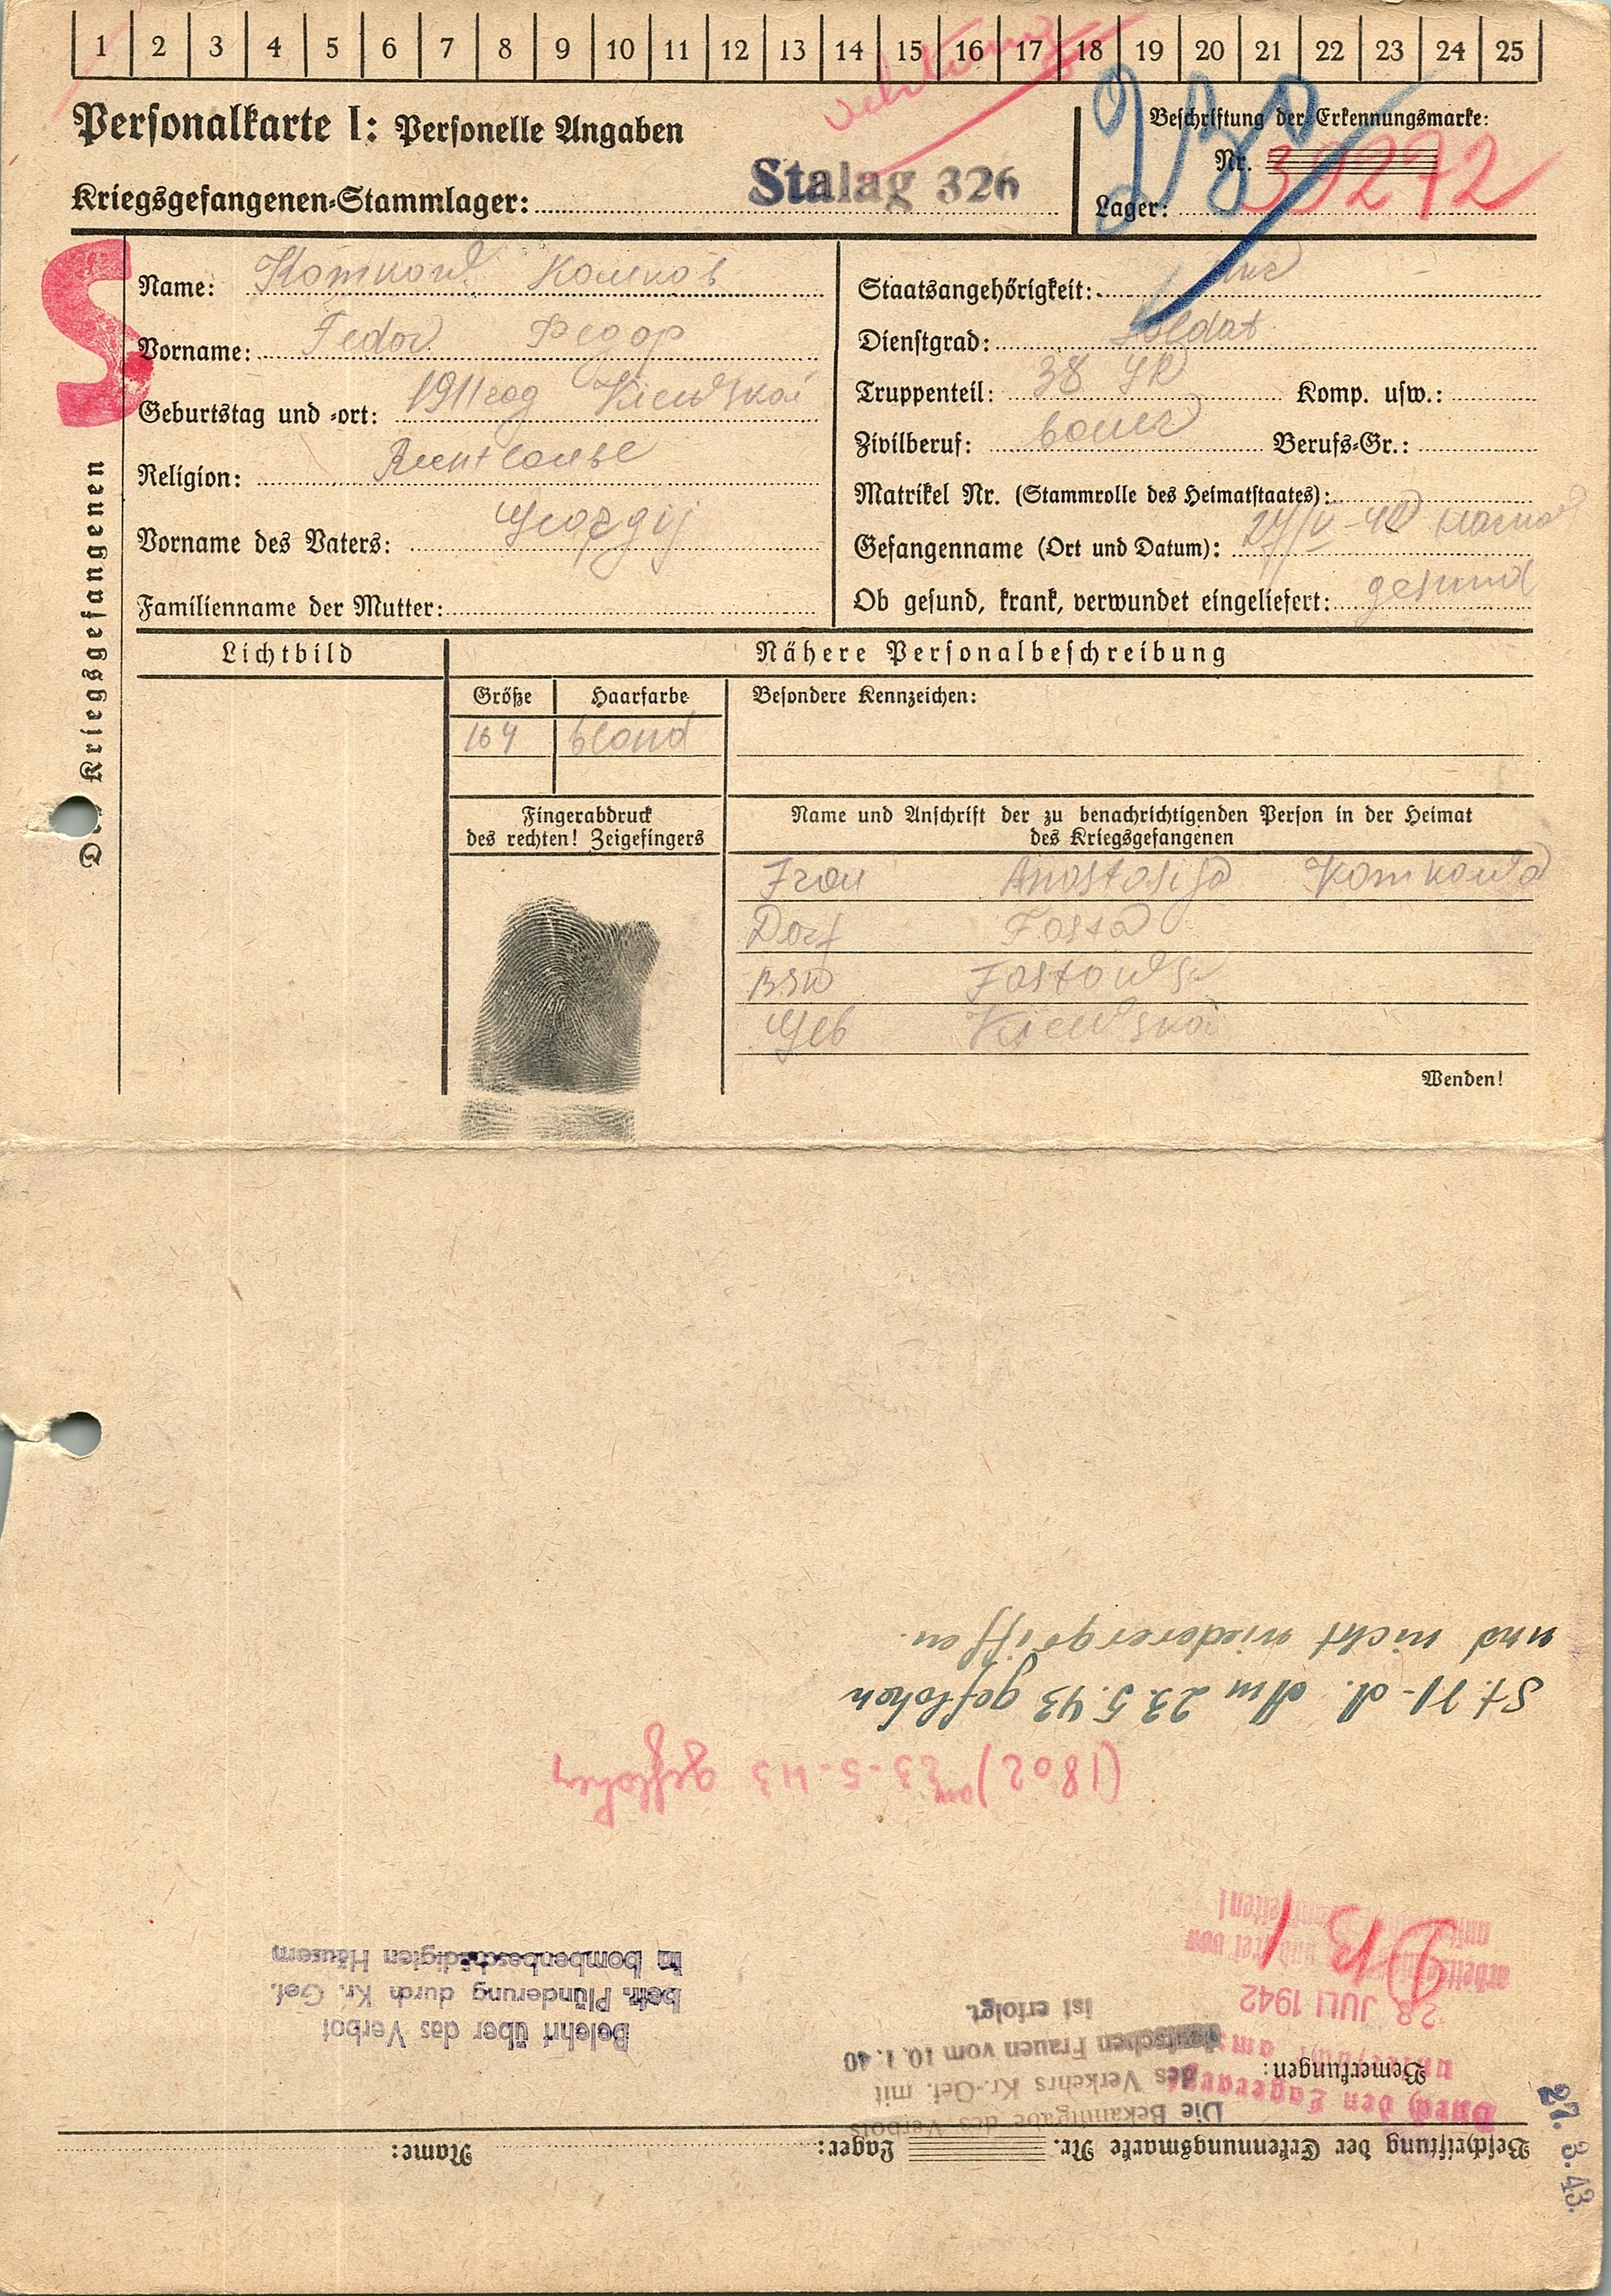 1 2 3 4 5 6 7 8 9 10 11 12 13 14 15 16 17 18 19 20 21 22 23 24 25
Personalkarte I: Personelle Angaben
Kriegsgefangenen-Stammlager: Stalag 326
Beschriftung der Erkennungsmarke:
Nr. 39272
Lager:
S
Des Kriegsgefangenen
Name: Komkow Комков
Vorname: Fedor Федор
Geburtstag und -ort: 1911 год Kiewskai
Religion:
Vorname des Vaters: Georgij
Familienname der Mutter:
Staatsangehörigkeit:
Dienstgrad: Soldat
Truppenteil: 38 Komp. usw.:
Zivilberuf: bauer Berufs-Gr.:
Matrikel Nr. (Stammrolle des Heimatstaates):
Gefangenname (Ort und Datum):
Ob gesund, krank, verwundet eingeliefert: gesund
Lichtbild
Nähere Personalbeschreibung
Größe Haarfarbe Besondere Kennzeichen:
164 blond
Fingerabdruck
des rechten! Zeigefingers
Name und Anschrift der zu benachrichtigenden Person in der Heimat
des Kriegsgefangenen
Frau Anastasija Komkowa
Dorf
Geb Kiewskai
Wenden!
Beschriftung der Erkennungsmarke Nr. Lager: Name:
27. 3. 43.
Bemerkungen:
Durch den Lagerarzt
untersucht am
28. JULI 1942
Die Bekanntgabe des Verbots
des Verkehrs Kr.-Gef. mit
deutschen Frauen vom 10. 1. 40
ist erfolgt.
Belehrt über das Verbot
betr. Plünderung durch Kr. Gef.
in bombenbeschädigten Häusern
(1802) am 23-5-43 geflohen
St. VI-A. Am 23.5.43 geflohen
und nicht wiederergriffen.